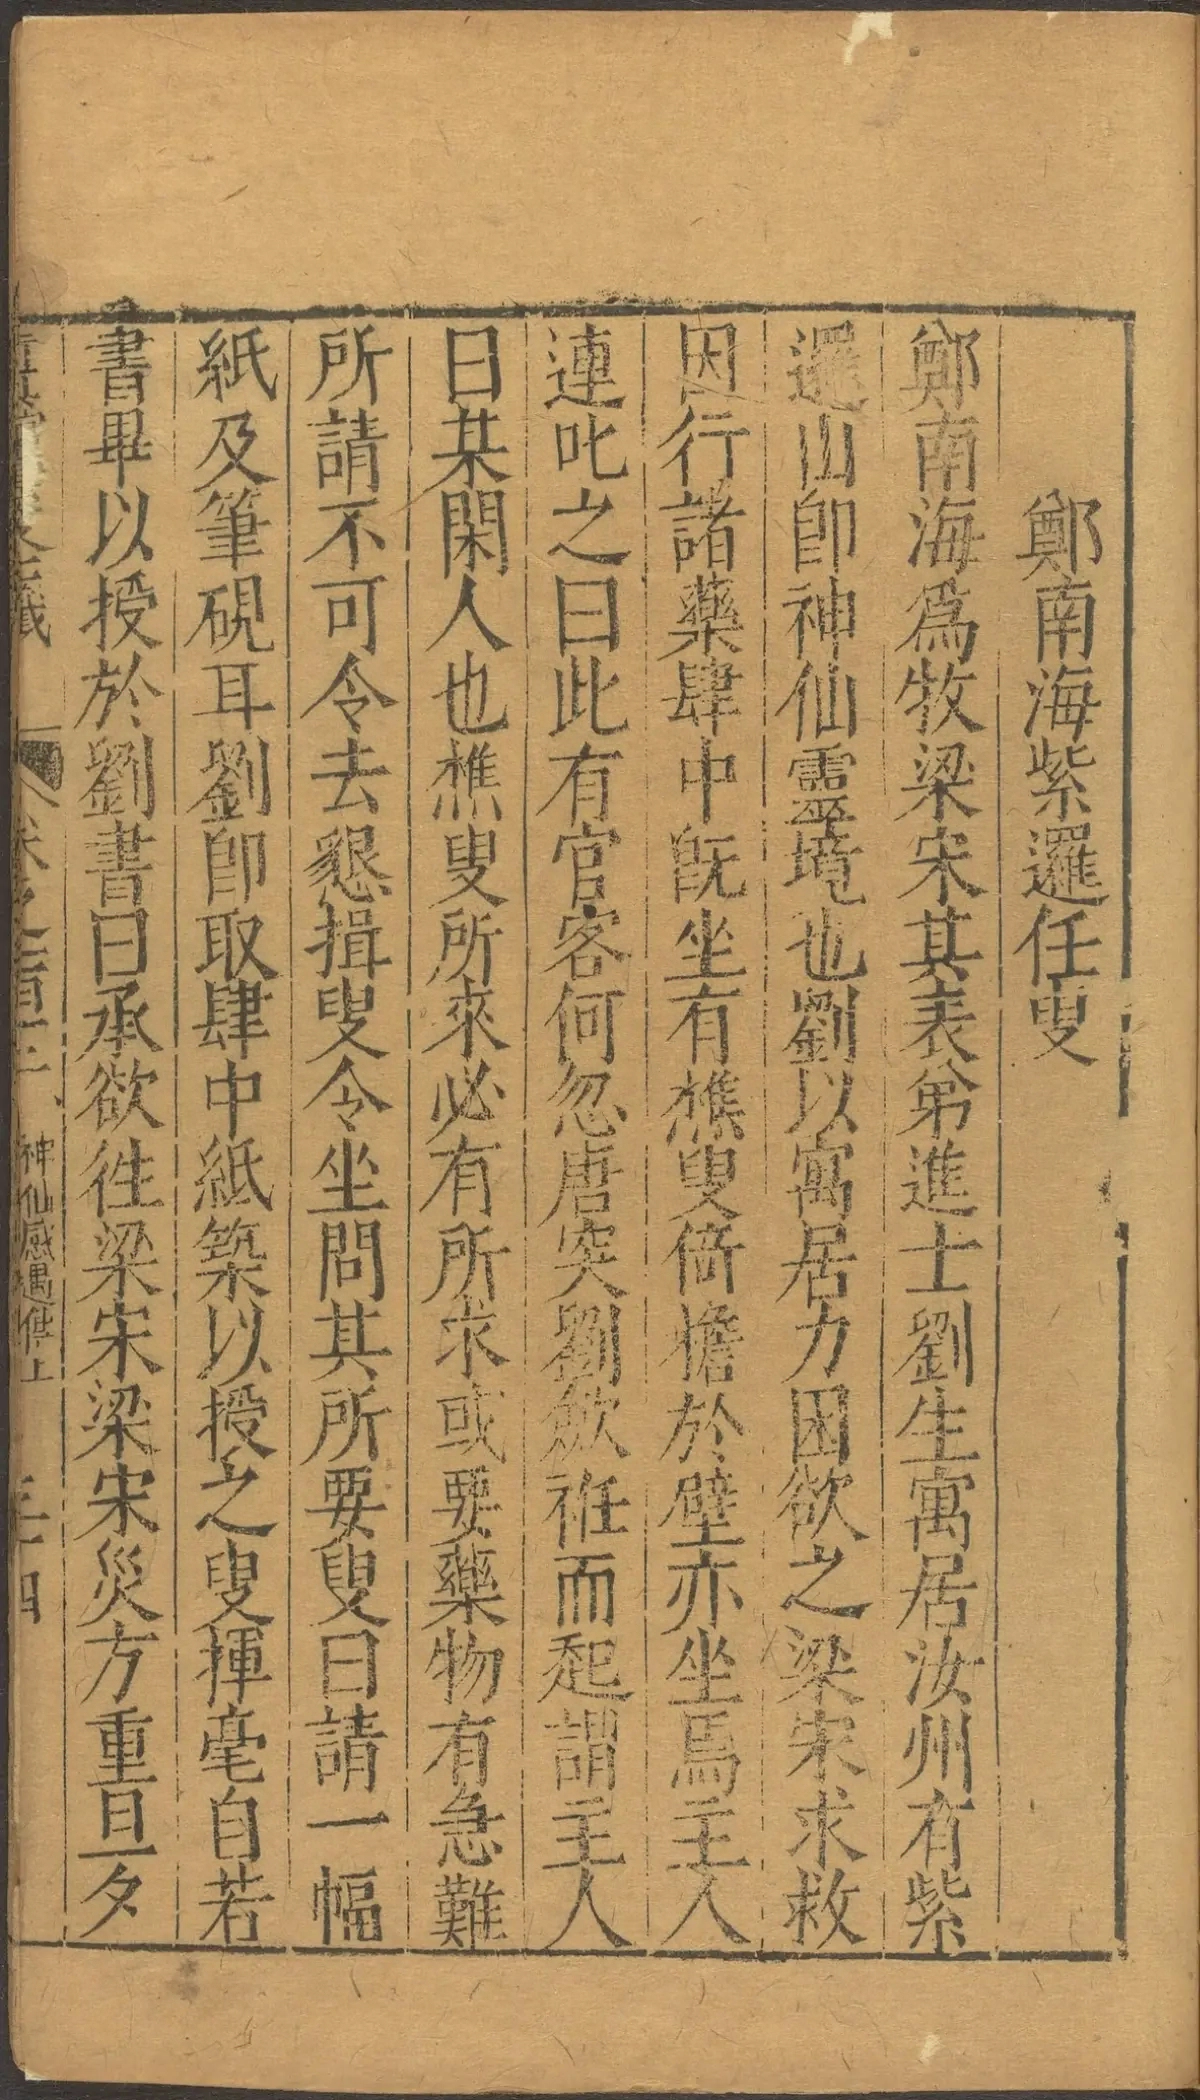 鄭南海紫邏任叟
鄭南海爲牧梁宋其表弟進士劉生寓居汝州有紫
邏山卽神仙靈境也劉以寓居力困欲之梁宋求救
因行諸藥肆中旣坐有樵叟倚檐於壁亦坐焉主人
連叱之曰此有官客何忽唐突劉斂袵而起謂主人
曰某閑人也樵叟所來必有所求或要藥物有急難
所請不可令去懇揖叟令坐問其所要叟曰請一幅
紙及筆硯耳劉卽取肆中紙築以授之叟揮毫自若
書畢以授於劉書曰承欲往梁宋梁宋災方重旦夕
卷之一百十二 神仙感遇傳上